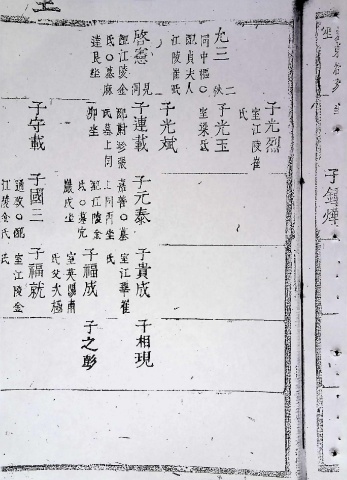 九三
同中樞○
配貞夫人
江陵崔氏
子光烈
室江陵崔
氏
子光玉
室梁氏
子光斌
啓憲
配江陵金
氏○墓麻
達艮坐
子連載
氏墓上同
卯坐
子元泰
嘉善○墓
上同丙坐
配江陵金
子貴成
室江華崔
氏
子相現
子福成
室英陽南
氏父太極
子之彭
子守載
子國三
通政○配
江陵金氏
子福就
室江陵金
氏